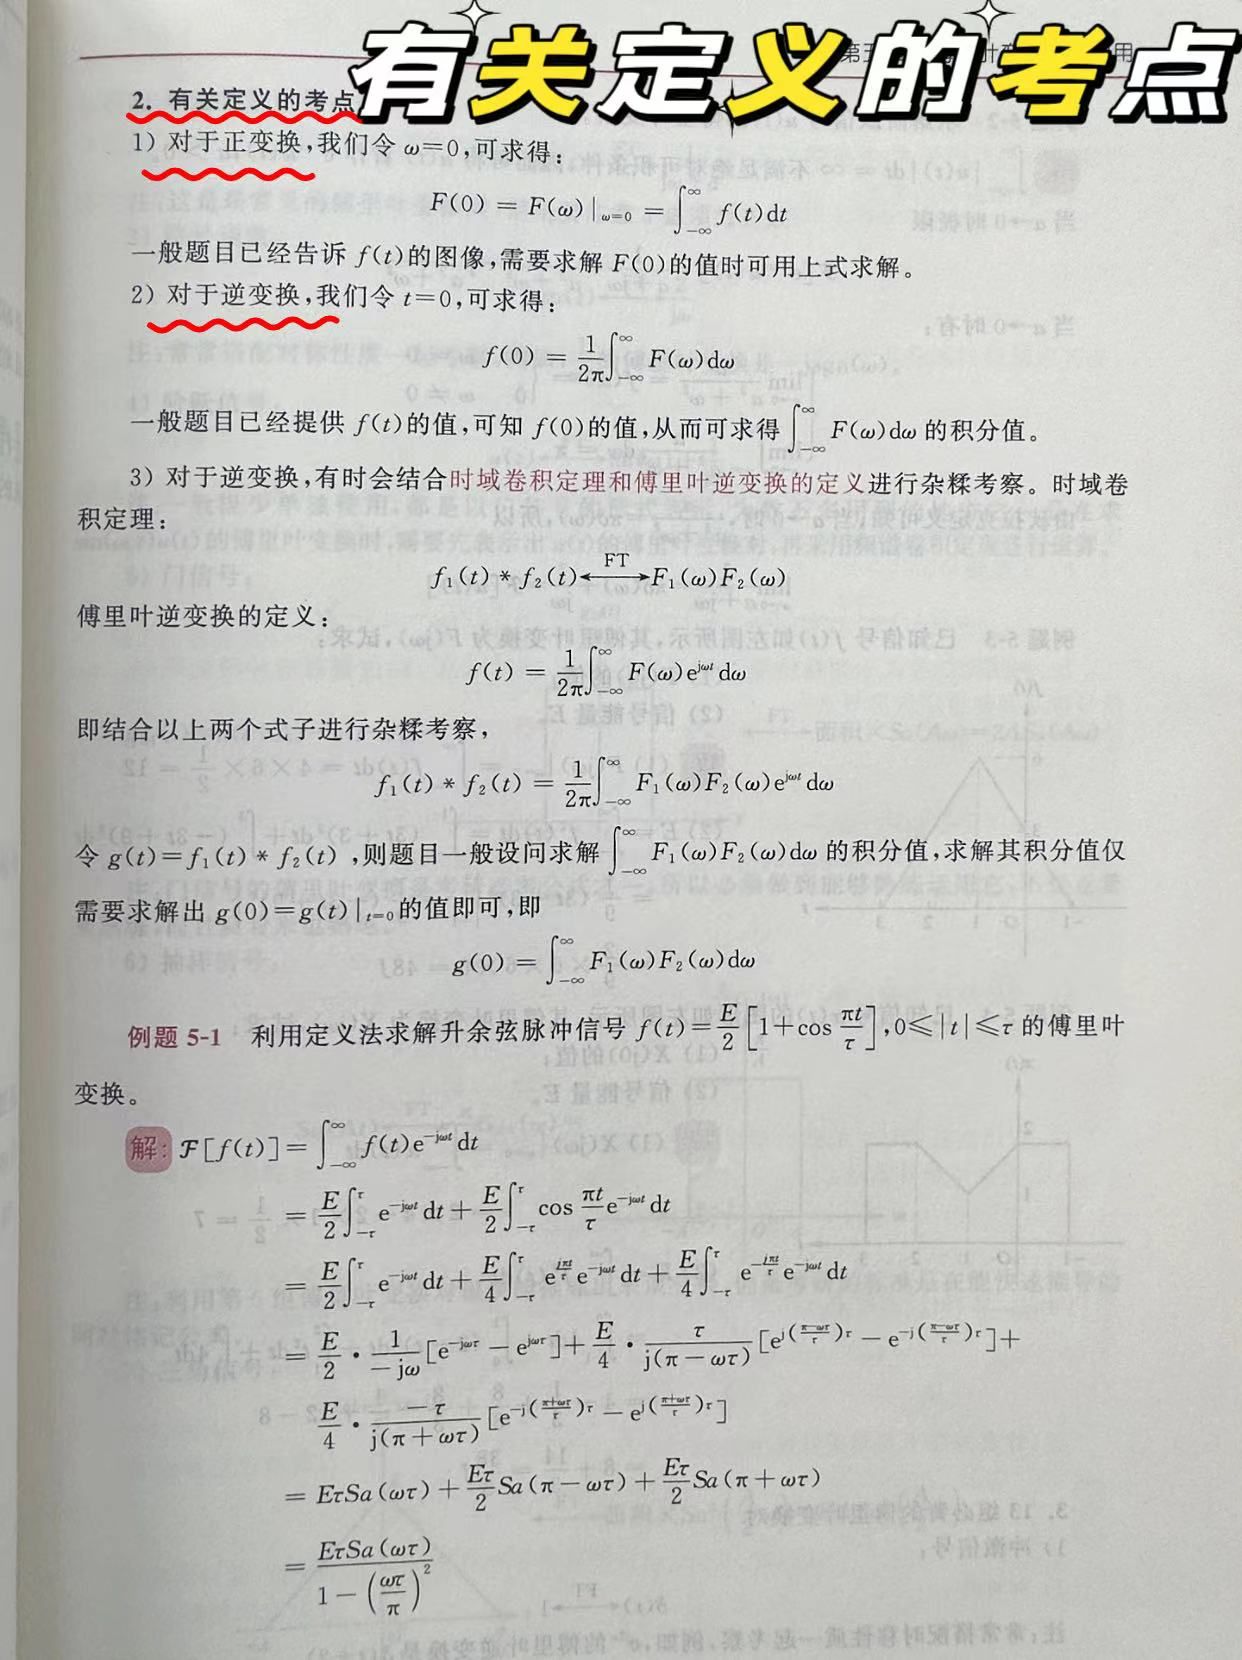 有关定义的考点
第五
用
2. 有关定义的考点
1) 对于正变换,我们令 ω=0,可求得:
F(0) = F(ω)|_{ω=0} = ∫_{-∞}^{∞} f(t)dt
一般题目已经告诉 f(t)的图像,需要求解 F(0)的值时可用上式求解。
2) 对于逆变换,我们令 t=0,可求得:
f(0) = \frac{1}{2π}∫_{-∞}^{∞} F(ω)dω
一般题目已经提供 f(t)的值,可知 f(0)的值,从而可求得∫_{-∞}^{∞} F(ω)dω 的积分值。
3) 对于逆变换,有时会结合时域卷积定理和傅里叶逆变换的定义进行杂糅考察。时域卷
积定理:
f₁(t) * f₂(t) ←FT→ F₁(ω)F₂(ω)
傅里叶逆变换的定义:
f(t) = \frac{1}{2π}∫_{-∞}^{∞} F(ω)e^{jωt} dω
即结合以上两个式子进行杂糅考察,
f₁(t) * f₂(t) = \frac{1}{2π}∫_{-∞}^{∞} F₁(ω)F₂(ω)e^{jωt} dω
令 g(t)=f₁(t) * f₂(t) ,则题目一般设问求解∫_{-∞}^{∞} F₁(ω)F₂(ω)dω 的积分值,求解其积分值仅
需要求解出 g(0)=g(t)|_{t=0}的值即可,即
g(0) = ∫_{-∞}^{∞} F₁(ω)F₂(ω)dω
例题 5-1 利用定义法求解升余弦脉冲信号 f(t)=\frac{E}{2}[1+cos \frac{πt}{τ}],0≤|t|≤τ 的傅里叶
变换。
解: ℱ[f(t)]=∫_{-∞}^{∞} f(t)e^{-jωt} dt
= \frac{E}{2}∫_{-τ}^{τ} e^{-jωt} dt + \frac{E}{2}∫_{-τ}^{τ} cos \frac{πt}{τ}e^{-jωt} dt
= \frac{E}{2}∫_{-τ}^{τ} e^{-jωt} dt + \frac{E}{4}∫_{-τ}^{τ} e^{\frac{jπt}{τ}} e^{-jωt} dt + \frac{E}{4}∫_{-τ}^{τ} e^{-\frac{jπt}{τ}} e^{-jωt} dt
= \frac{E}{2} · \frac{1}{-jω}[e^{-jωτ} - e^{jωτ}] + \frac{E}{4} · \frac{τ}{j(π-ωτ)}[e^{j(\frac{π-ωτ}{τ})τ} - e^{-j(\frac{π-ωτ}{τ})τ}] +
\frac{E}{4} · \frac{-τ}{j(π+ωτ)}[e^{-j(\frac{π+ωτ}{τ})τ} - e^{j(\frac{π+ωτ}{τ})τ}]
= EτSa(ωτ) + \frac{Eτ}{2}Sa(π-ωτ) + \frac{Eτ}{2}Sa(π+ωτ)
= \frac{EτSa(ωτ)}{1-(\frac{ωτ}{π})^{2}}